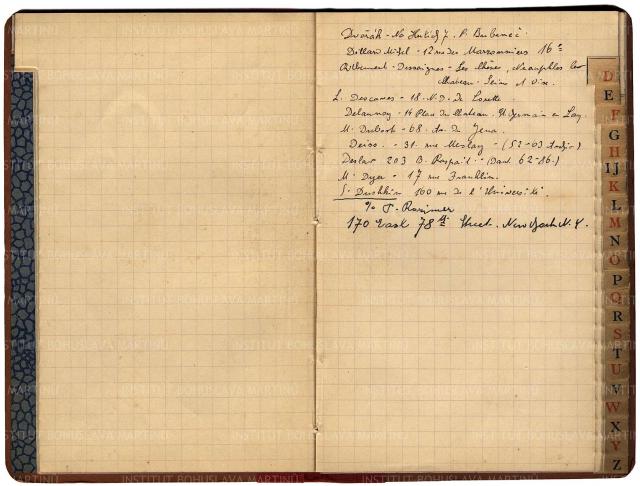 Dvořák - Na Hutích 7. P. Bubeneč
Dillard Michel - 12 rue des Marronniers 16e
Ribemont-Dessaignes - Les
Chateau. Seine et Oise.
L. Descaves - 18. N.D. de Lorette
Delaunay - Place du Chateau. St Germain en Lay.
M. Dubost - 68. Av. de Jena.
31. rue Meslay - (52-03
203 B. Raspail - (Dant. 62-86.)
M. Dyer - 17 rue Franklin.
S. Dushkin 160 rue de l'Université.
% P. Rovimer
170 East 78th Street. New York N.Y.
D
E
F
G
H
IJ
K
L
M
N
O
P
Q
R
S
T
U
V
W
X
Y
Z
INSTITUT BOHUSLAVA MARTINŮ